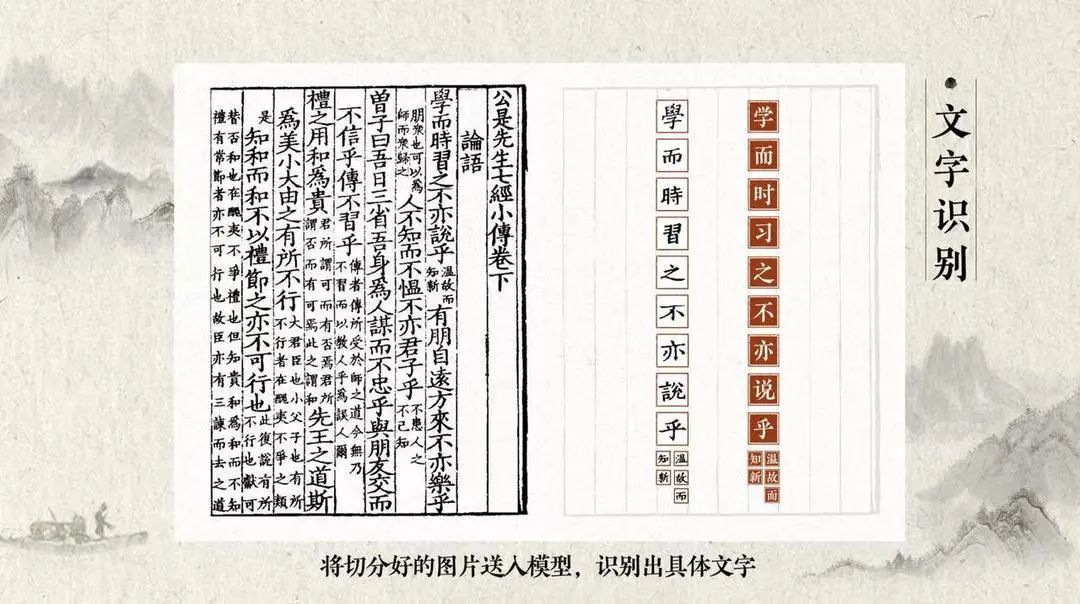 文字识别
公是先生七經小傳卷下
論語
學而時習之不亦說乎溫故而知新有朋自遠方來不亦樂乎
朋衆也可以爲師而衆歸之人不知而不慍不亦君子乎不患人之不己知
曾子曰吾日三省吾身爲人謀而不忠乎與朋友交而
不信乎傳不習乎傳者傳所受於師之道今無乃不習而以教人乎爲誤人爾
禮之用和爲貴君所謂可而有否焉君所謂否而有可焉此之謂和先王之道斯
爲美小大由之有所不行大君臣也小父子也有所不行者在醜夷不爭之類
是知和而和不以禮節之亦不可行也此復說有所不行也獻可
替否和也在醜夷不爭禮也但知貴和爲和而不知禮有常節者亦不可行也故臣亦有三諫而去之道
学而时习之不亦说乎温故而知新
學而時習之不亦說乎溫故而知新
将切分好的图片送入模型，识别出具体文字